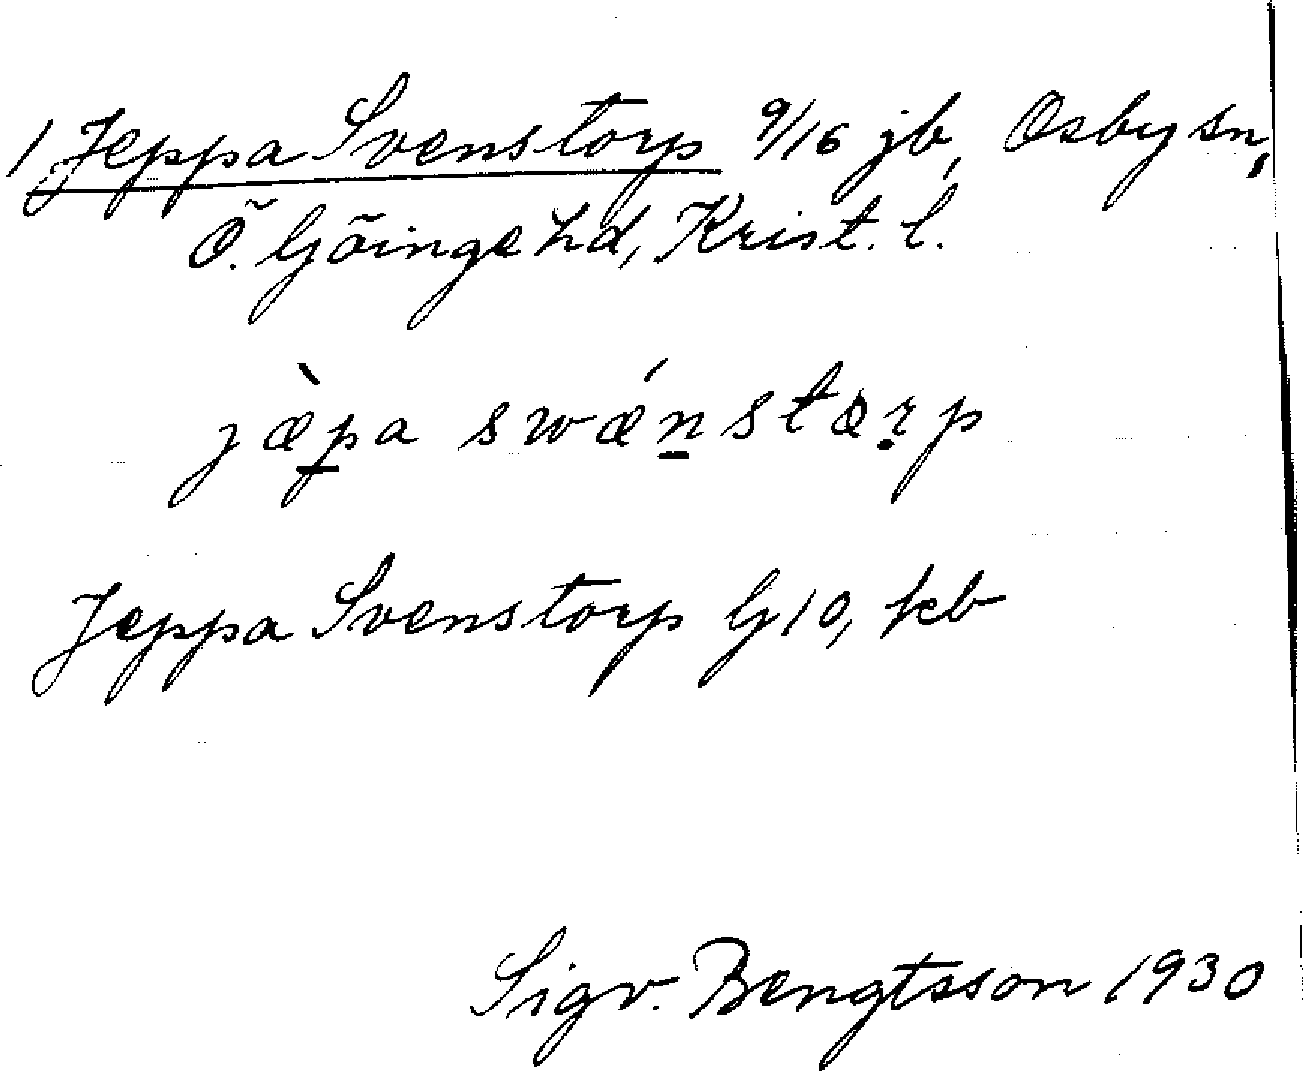 1 Jeppa Svenstorp 9/16 jb, Osby sn,
Ö. Göinge hd, Krist. l.
jæ̀p̲a swǽn̲stærp
Jeppa Svenstorp G10, kb
Sigv. Bengtsson 1930